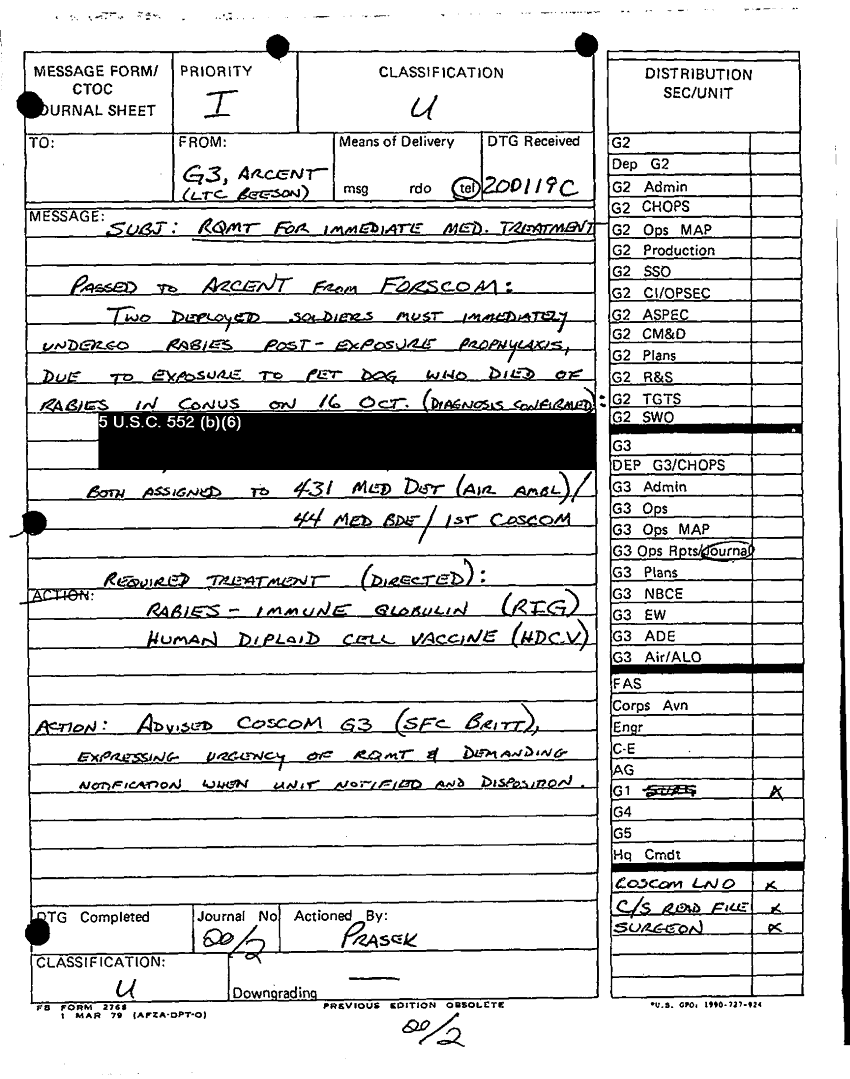 MESSAGE FORM/
CTOC
JOURNAL SHEET
PRIORITY
I
CLASSIFICATION
U
TO:
FROM:
G3, ARCENT
(LTC BEESON)
Means of Delivery
msg rdo tel
DTG Received
200119C
MESSAGE:
SUBJ: RQMT FOR IMMEDIATE MED. TREATMENT
PASSED TO ARCENT FROM FORSCOM:
TWO DEPLOYED SOLDIERS MUST IMMEDIATELY
UNDERGO RABIES POST-EXPOSURE PROPHYLAXIS,
DUE TO EXPOSURE TO PET DOG WHO DIED OF
RABIES IN CONUS ON 16 OCT. (DIAGNOSIS CONFIRMED):
5 U.S.C. 552 (b)(6)
BOTH ASSIGNED TO 431 MED DET (AIR AMBL)/
44 MED BDE/1ST COSCOM
REQUIRED TREATMENT (DIRECTED):
ACTION:
RABIES-IMMUNE GLOBULIN (RIG)
HUMAN DIPLOID CELL VACCINE (HDCV)
ACTION: ADVISED COSCOM G3 (SFC BRITT),
EXPRESSING URGENCY OF RQMT & DEMANDING
NOTIFICATION WHEN UNIT NOTIFIED AND DISPOSITION.
DTG Completed
Journal No
20/2
Actioned By:
PRASEK
CLASSIFICATION:
U
Downgrading —
FB FORM 2768
1 MAR 79 (AFZA-DPT-O)
PREVIOUS EDITION OBSOLETE
20/2
DISTRIBUTION
SEC/UNIT
G2
Dep G2
G2 Admin
G2 CHOPS
G2 Ops MAP
G2 Production
G2 SSO
G2 CI/OPSEC
G2 ASPEC
G2 CM&D
G2 Plans
G2 R&S
G2 TGTS
G2 SWO
G3
DEP G3/CHOPS
G3 Admin
G3 Ops
G3 Ops MAP
G3 Ops Rpts/Journal
G3 Plans
G3 NBCE
G3 EW
G3 ADE
G3 Air/ALO
FAS
Corps Avn
Engr
C-E
AG
G1 SURG X
G4
G5
Hq Cmdt
COSCOM LNO X
C/S READ FILE X
SURGEON X
*U.S. GPO: 1990-727-924